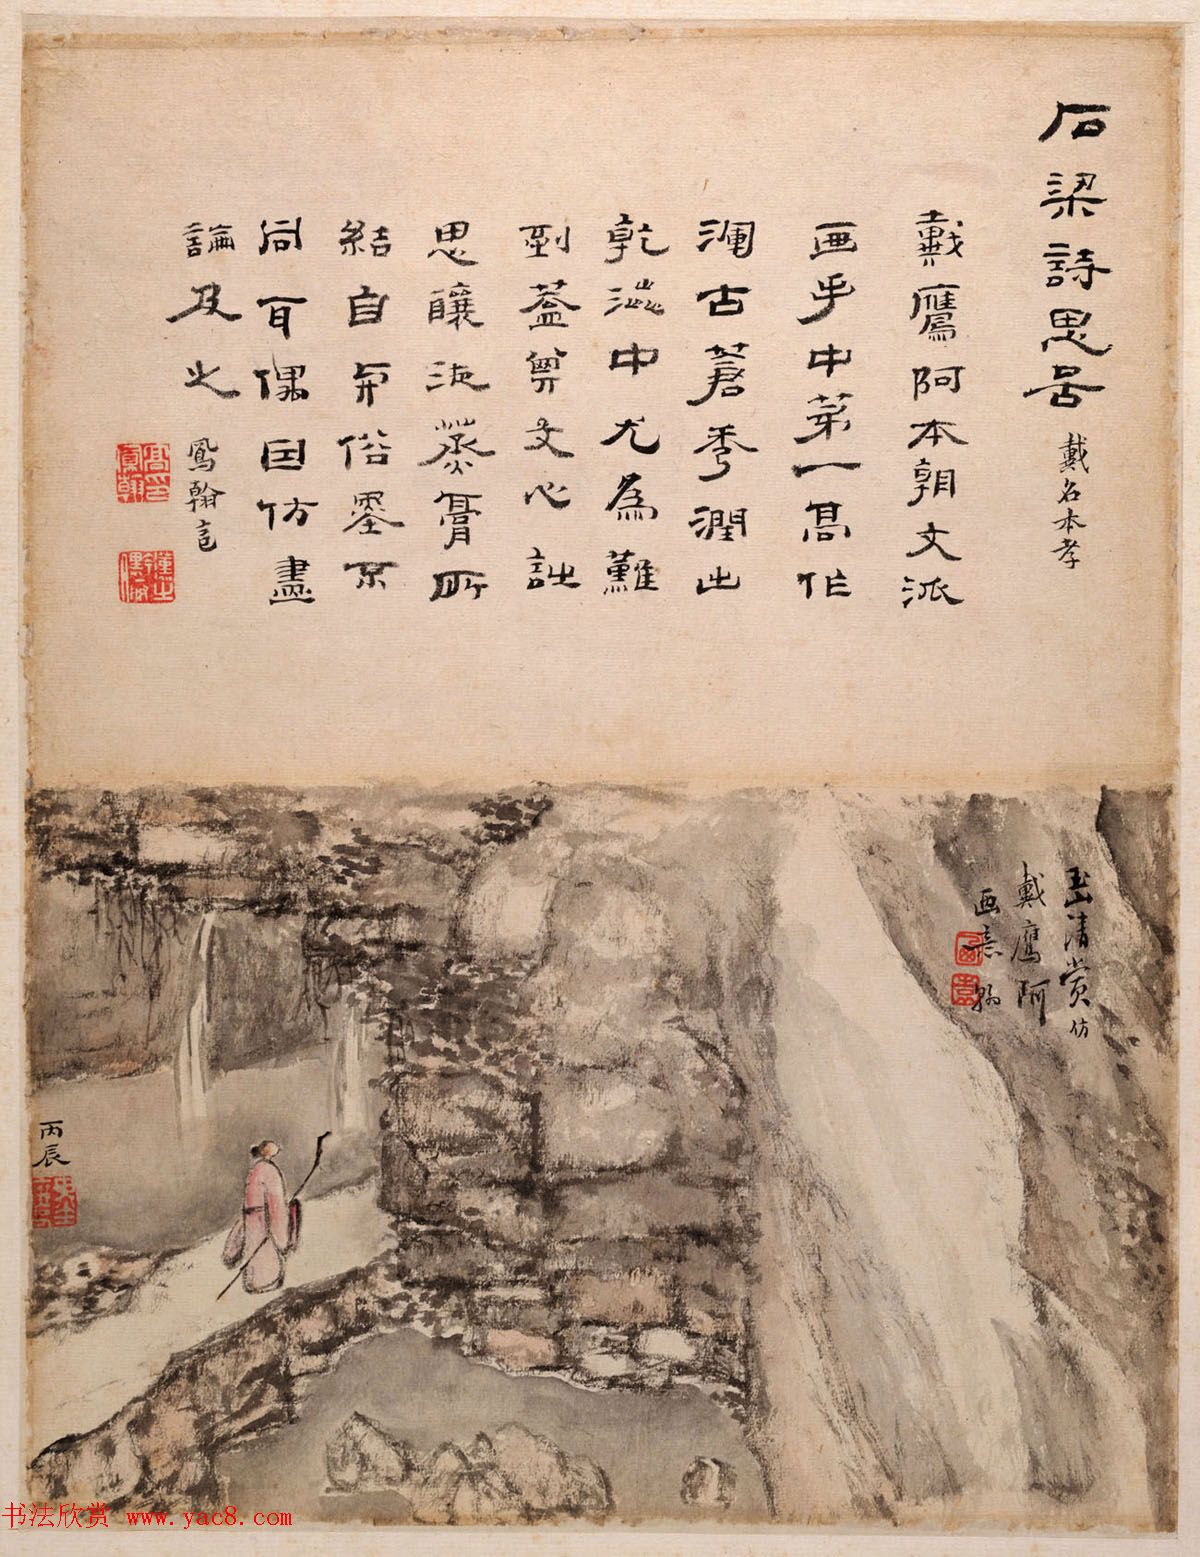 石梁詩思图
戴名本孝
戴鷹阿本朝文派
画手中第一高作
澗古蒼秀潤出
乾澁中尤為難
到蓋算文心詘
思釀池蒸膏所
結自与俗墨不
同耳偶因仿畫
論及之
鳳翰言
玉山清賞仿
戴鷹阿
画意
翰
丙辰
书法欣赏 www.yac8.com